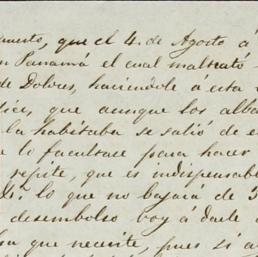 muerto, que el 4. de Agosto á
en Panamá el cual maltrató
de Dolores, haciendole á esta
dices, que aunque los alba
la habitaba se salió de e
e lo facultase para hacer
repite, que es indispensabl
lo que no bajará de 3
desembolso voy á darle
que necesite, pues si a